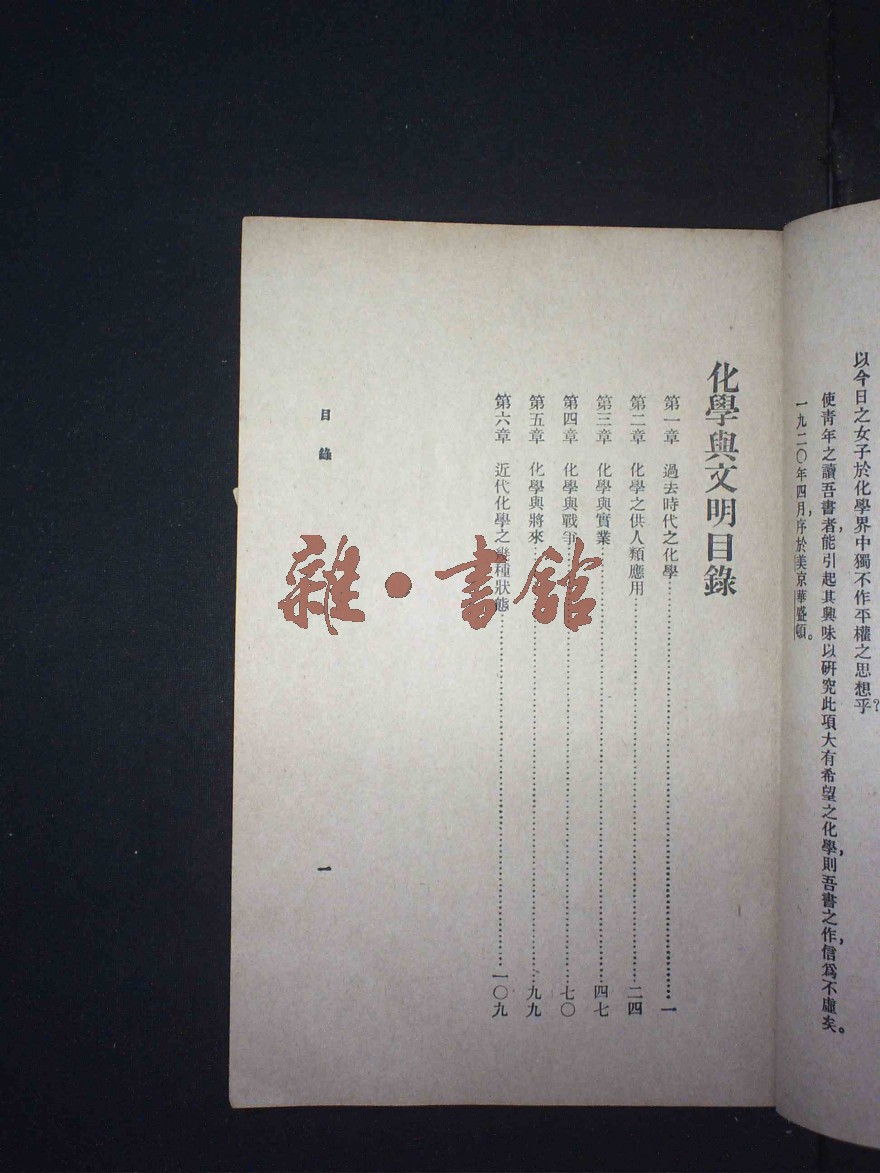 以今日之女子於化學界中獨不作平權之思想乎?
使青年之讀吾書者,能引起其興味以研究此項大有希望之化學,則吾書之作,信爲不虛矣。
一九二〇年四月,序於美京華盛頓。
化學與文明目錄
第一章 過去時代之化學……一
第二章 化學之供人類應用……二四
第三章 化學與實業……四七
第四章 化學與戰爭……七〇
第五章 化學與將來……九九
第六章 近代化學之種狀態……一〇九
目錄
一
雜·書館